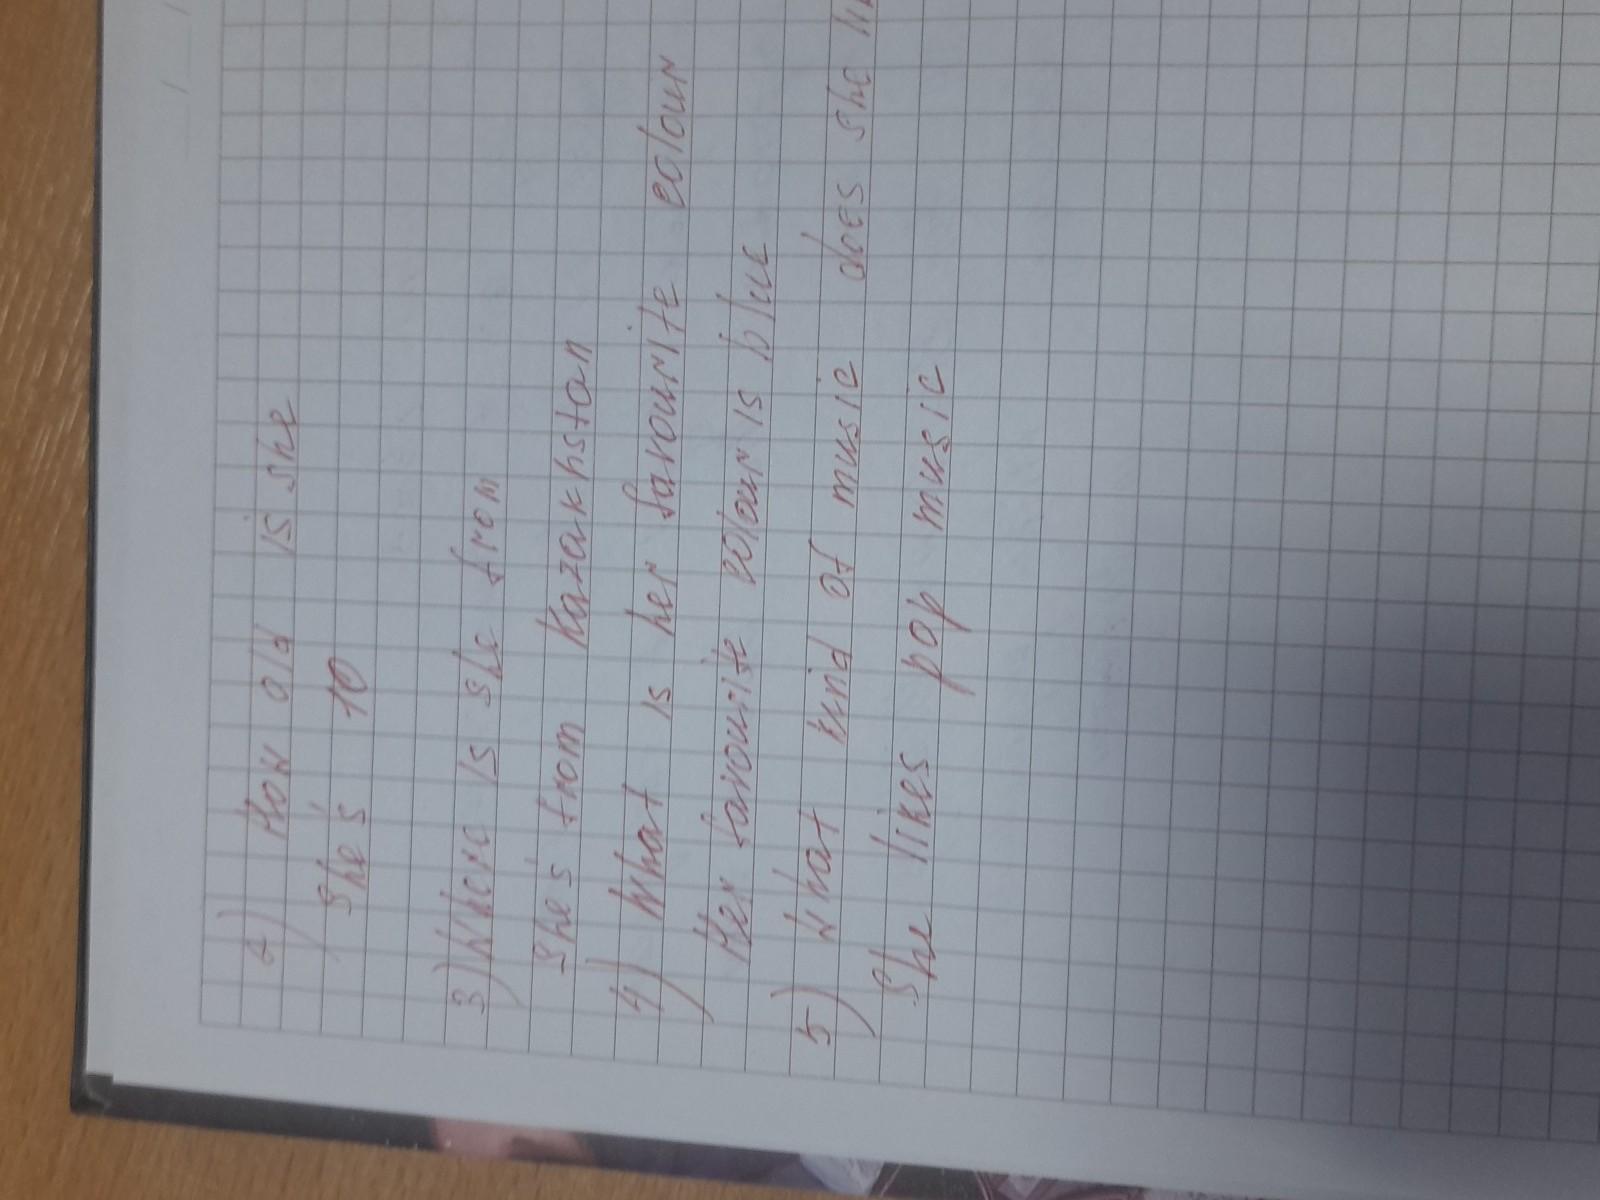 2) How old is she
She's 10
3) Where is she from
She's from Kazakhstan
4) What is her favourite colour
Her favourite colour is blue
5) What kind of music does she
She likes pop music